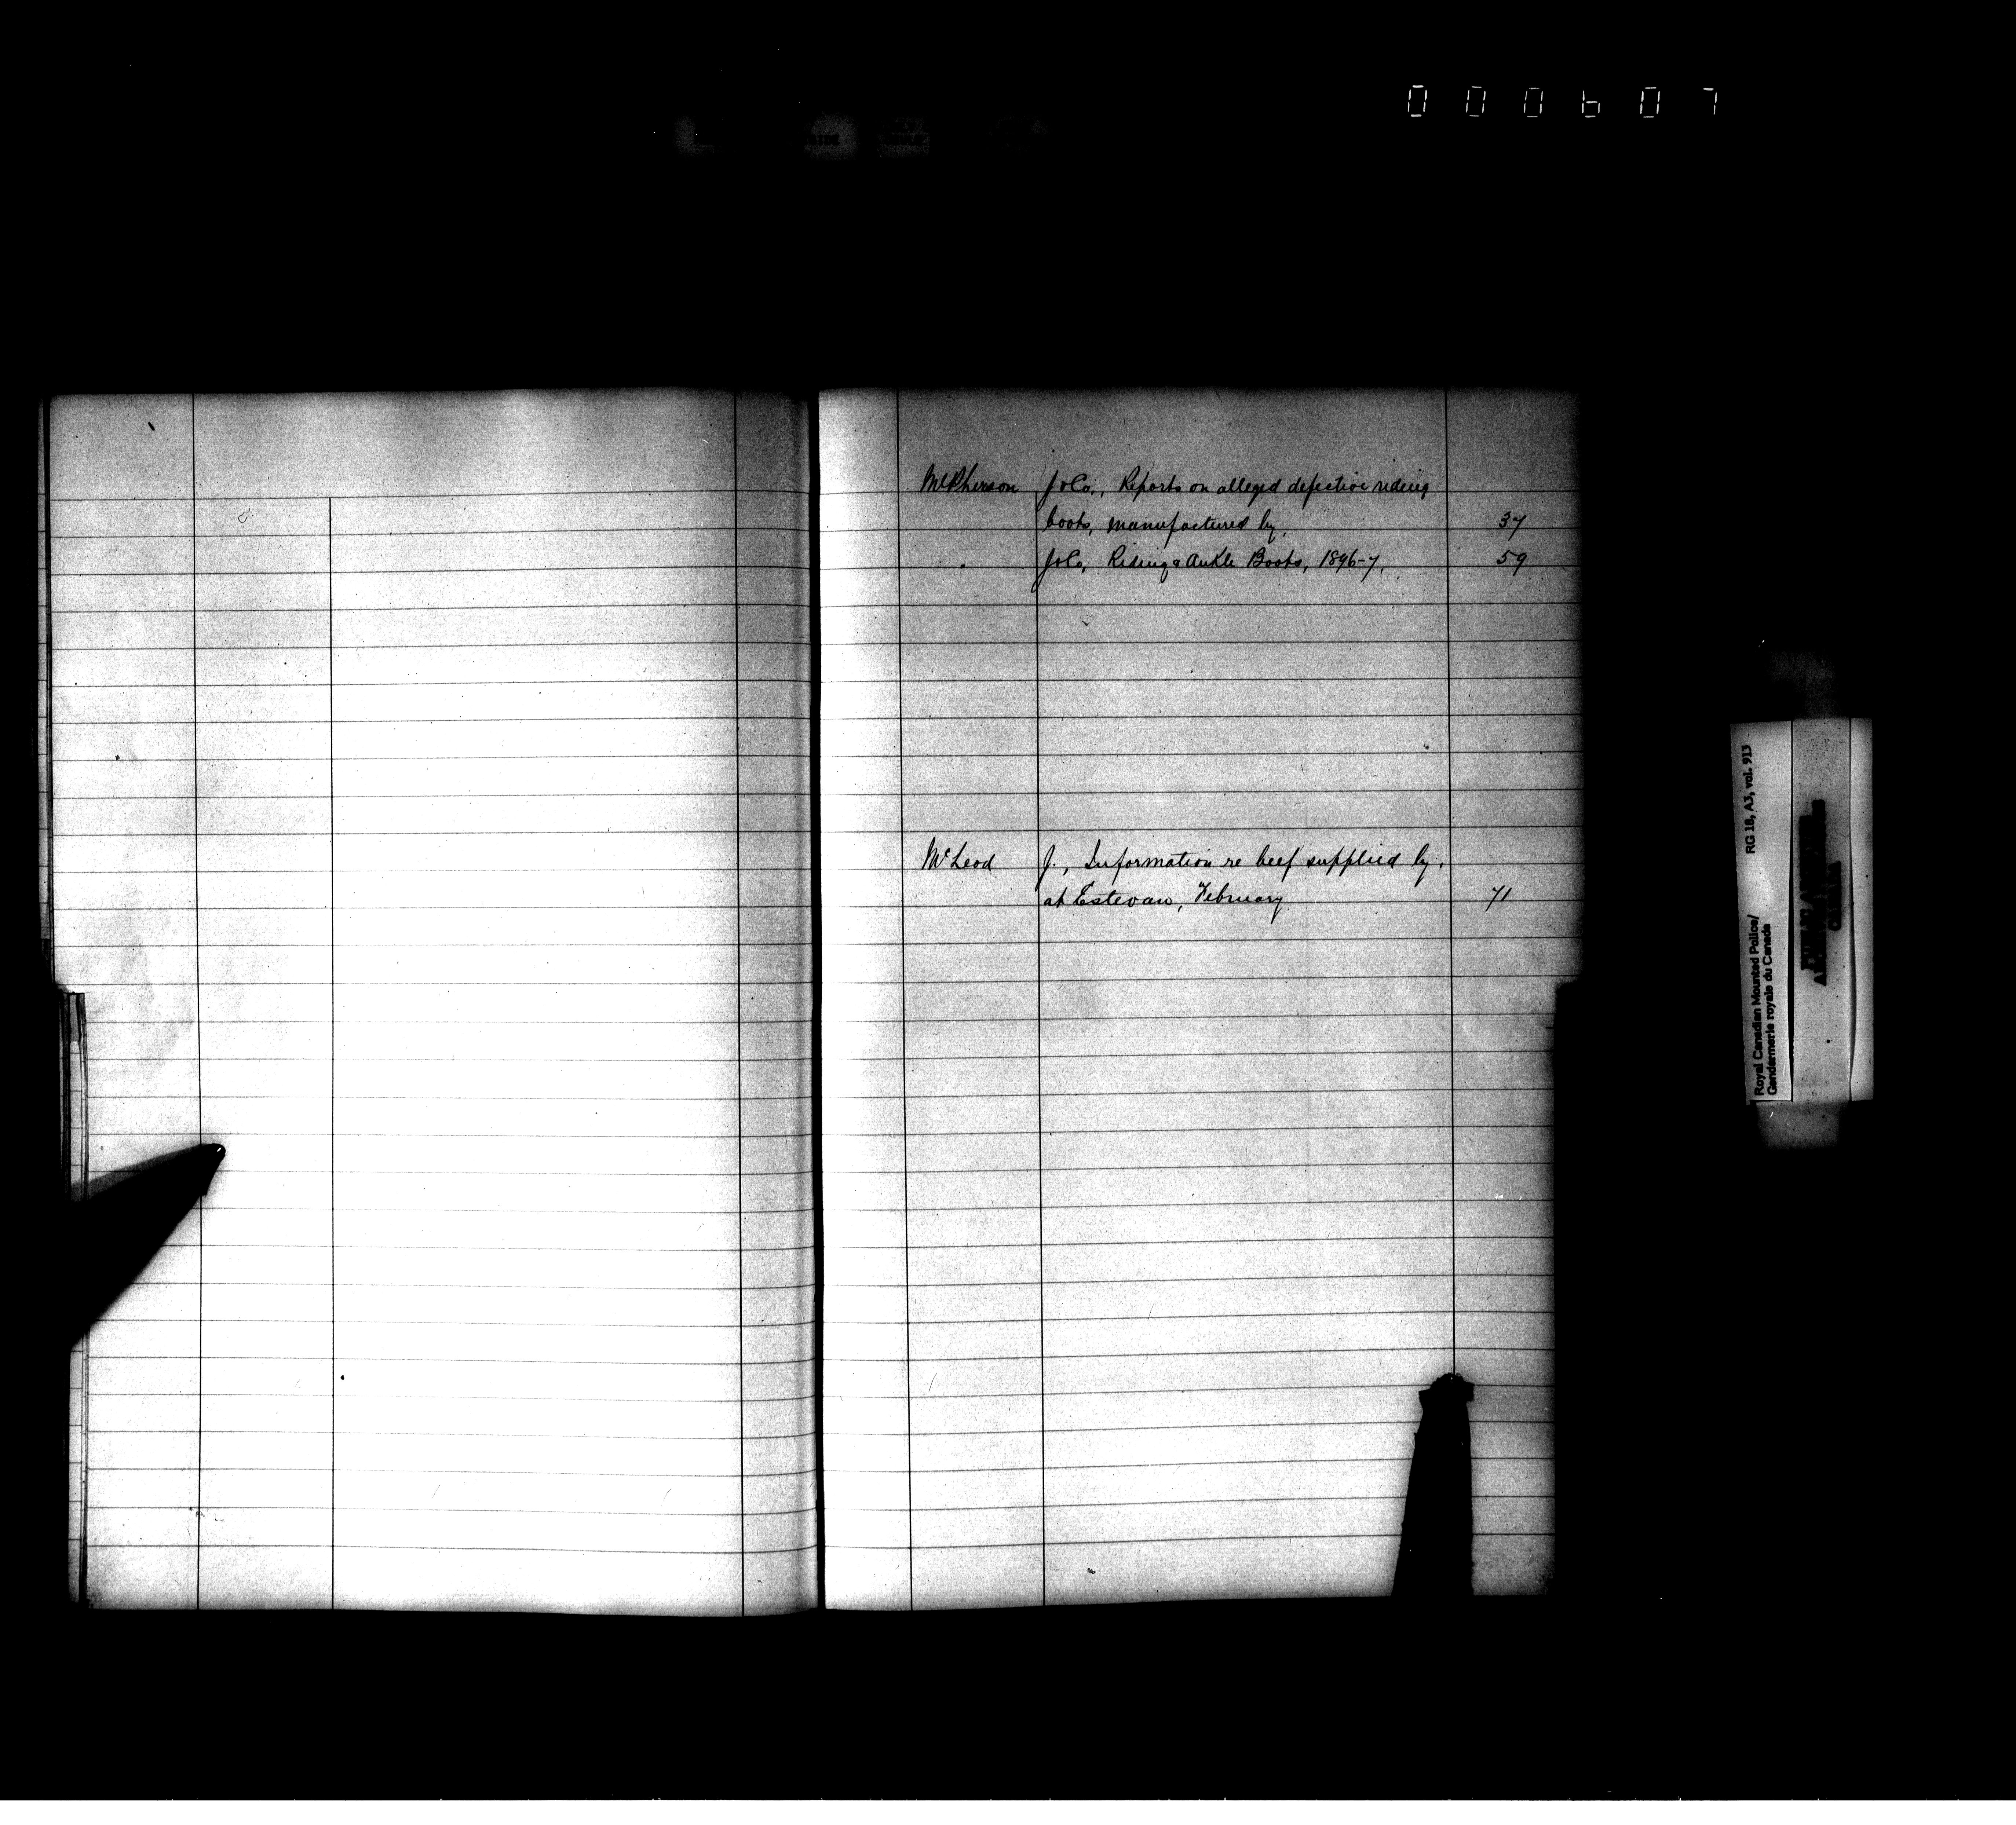 000607
McPherson J & Co., Reports on alleged defective riding
boots, manufactured by, 37
" J & Co, Riding & Ankle Boots, 1896-7, 59
McLeod J., Information re beef supplied by,
at Estevan, February 71
RG 18, A3, vol. 913
Royal Canadian Mounted Police/
Gendarmerie royale du Canada